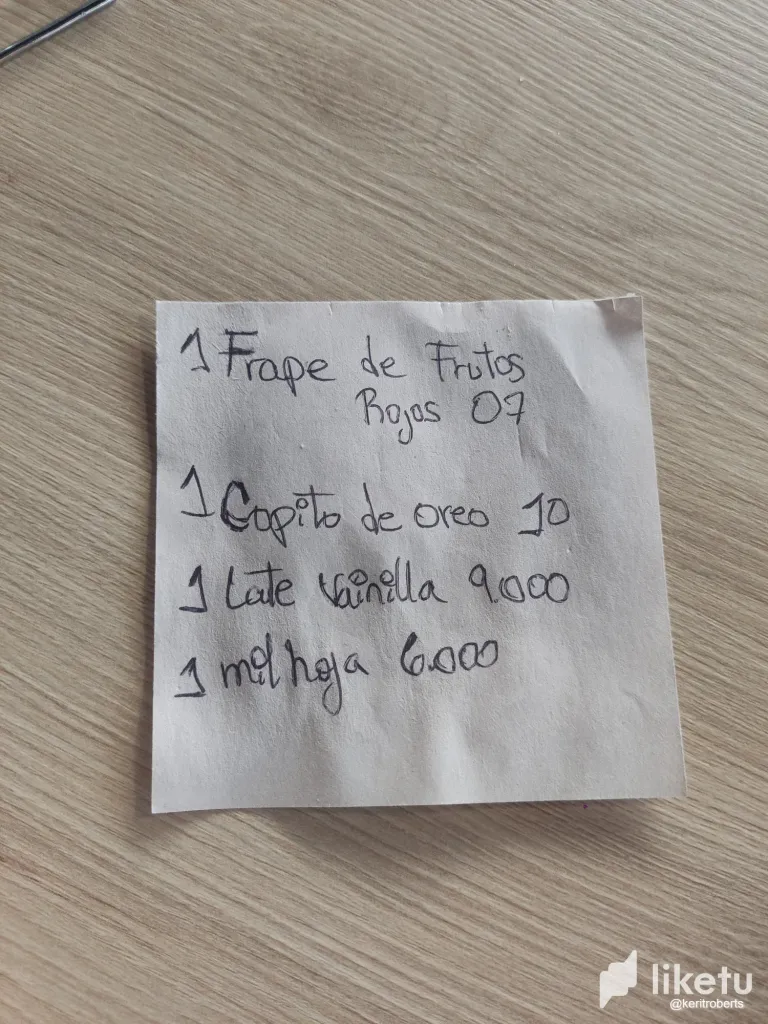 1 Frape de Frutos
Rojos 07
1 Copito de oreo 10
1 Late Vainilla 9.000
1 mil hoja 6.000
liketu
@keritroberts